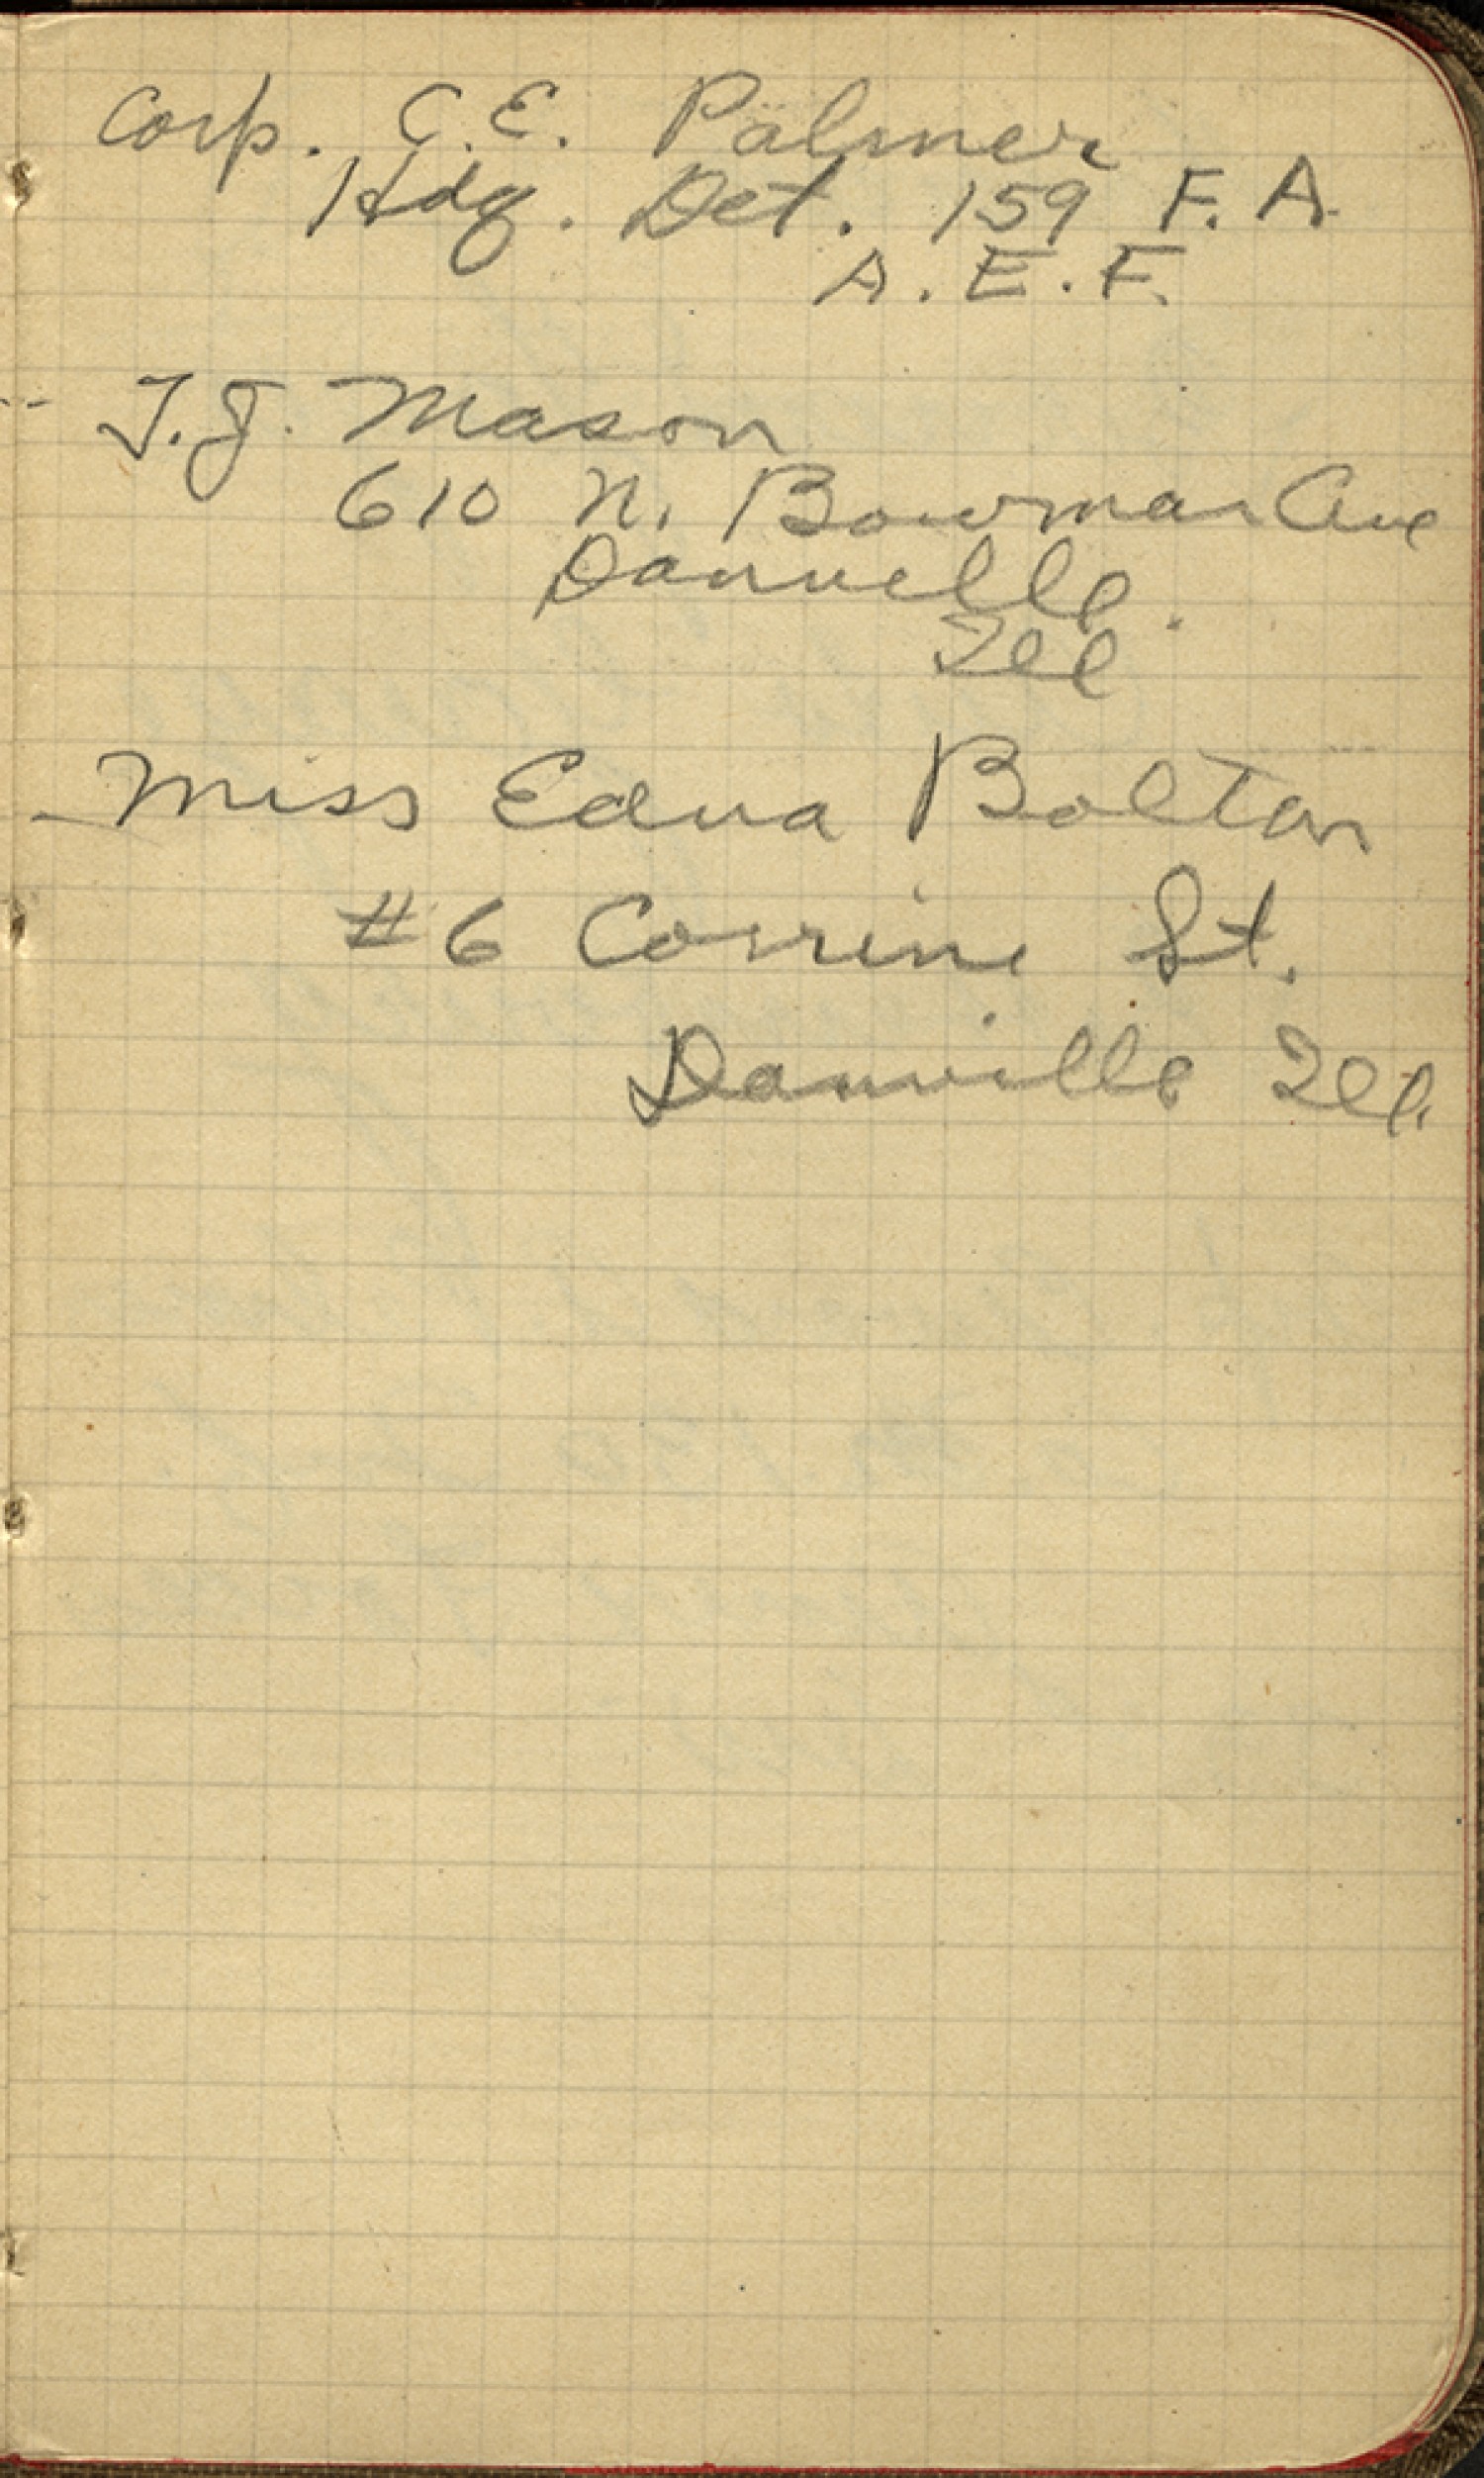 Corp. C. E. Palmer
Hdq. Det. 159 F. A.
A. E. F.
T. J. Mason
610 N. Bowman Ave
Danville.
Ill
Miss Edna Bolton
#6 Corrine St.
Danville Ill.